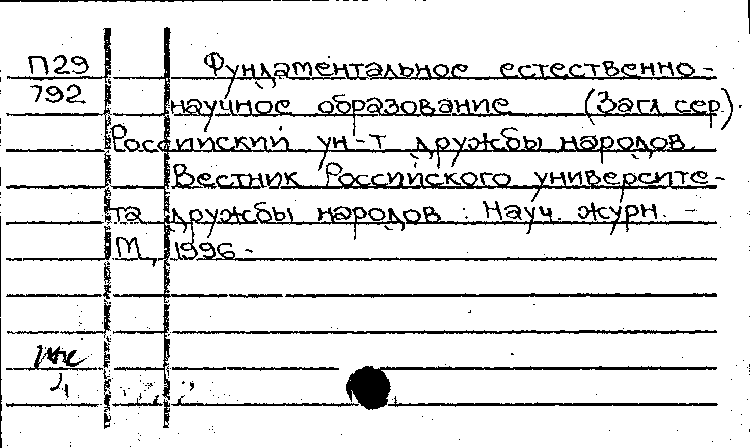 П29 Фундаментальное естественно-
792 научное образование (Загл сер).
Российский ун-т дружбы народов.
Вестник Российского университе-
та дружбы народов : Науч. журн. -
М., 1996 -